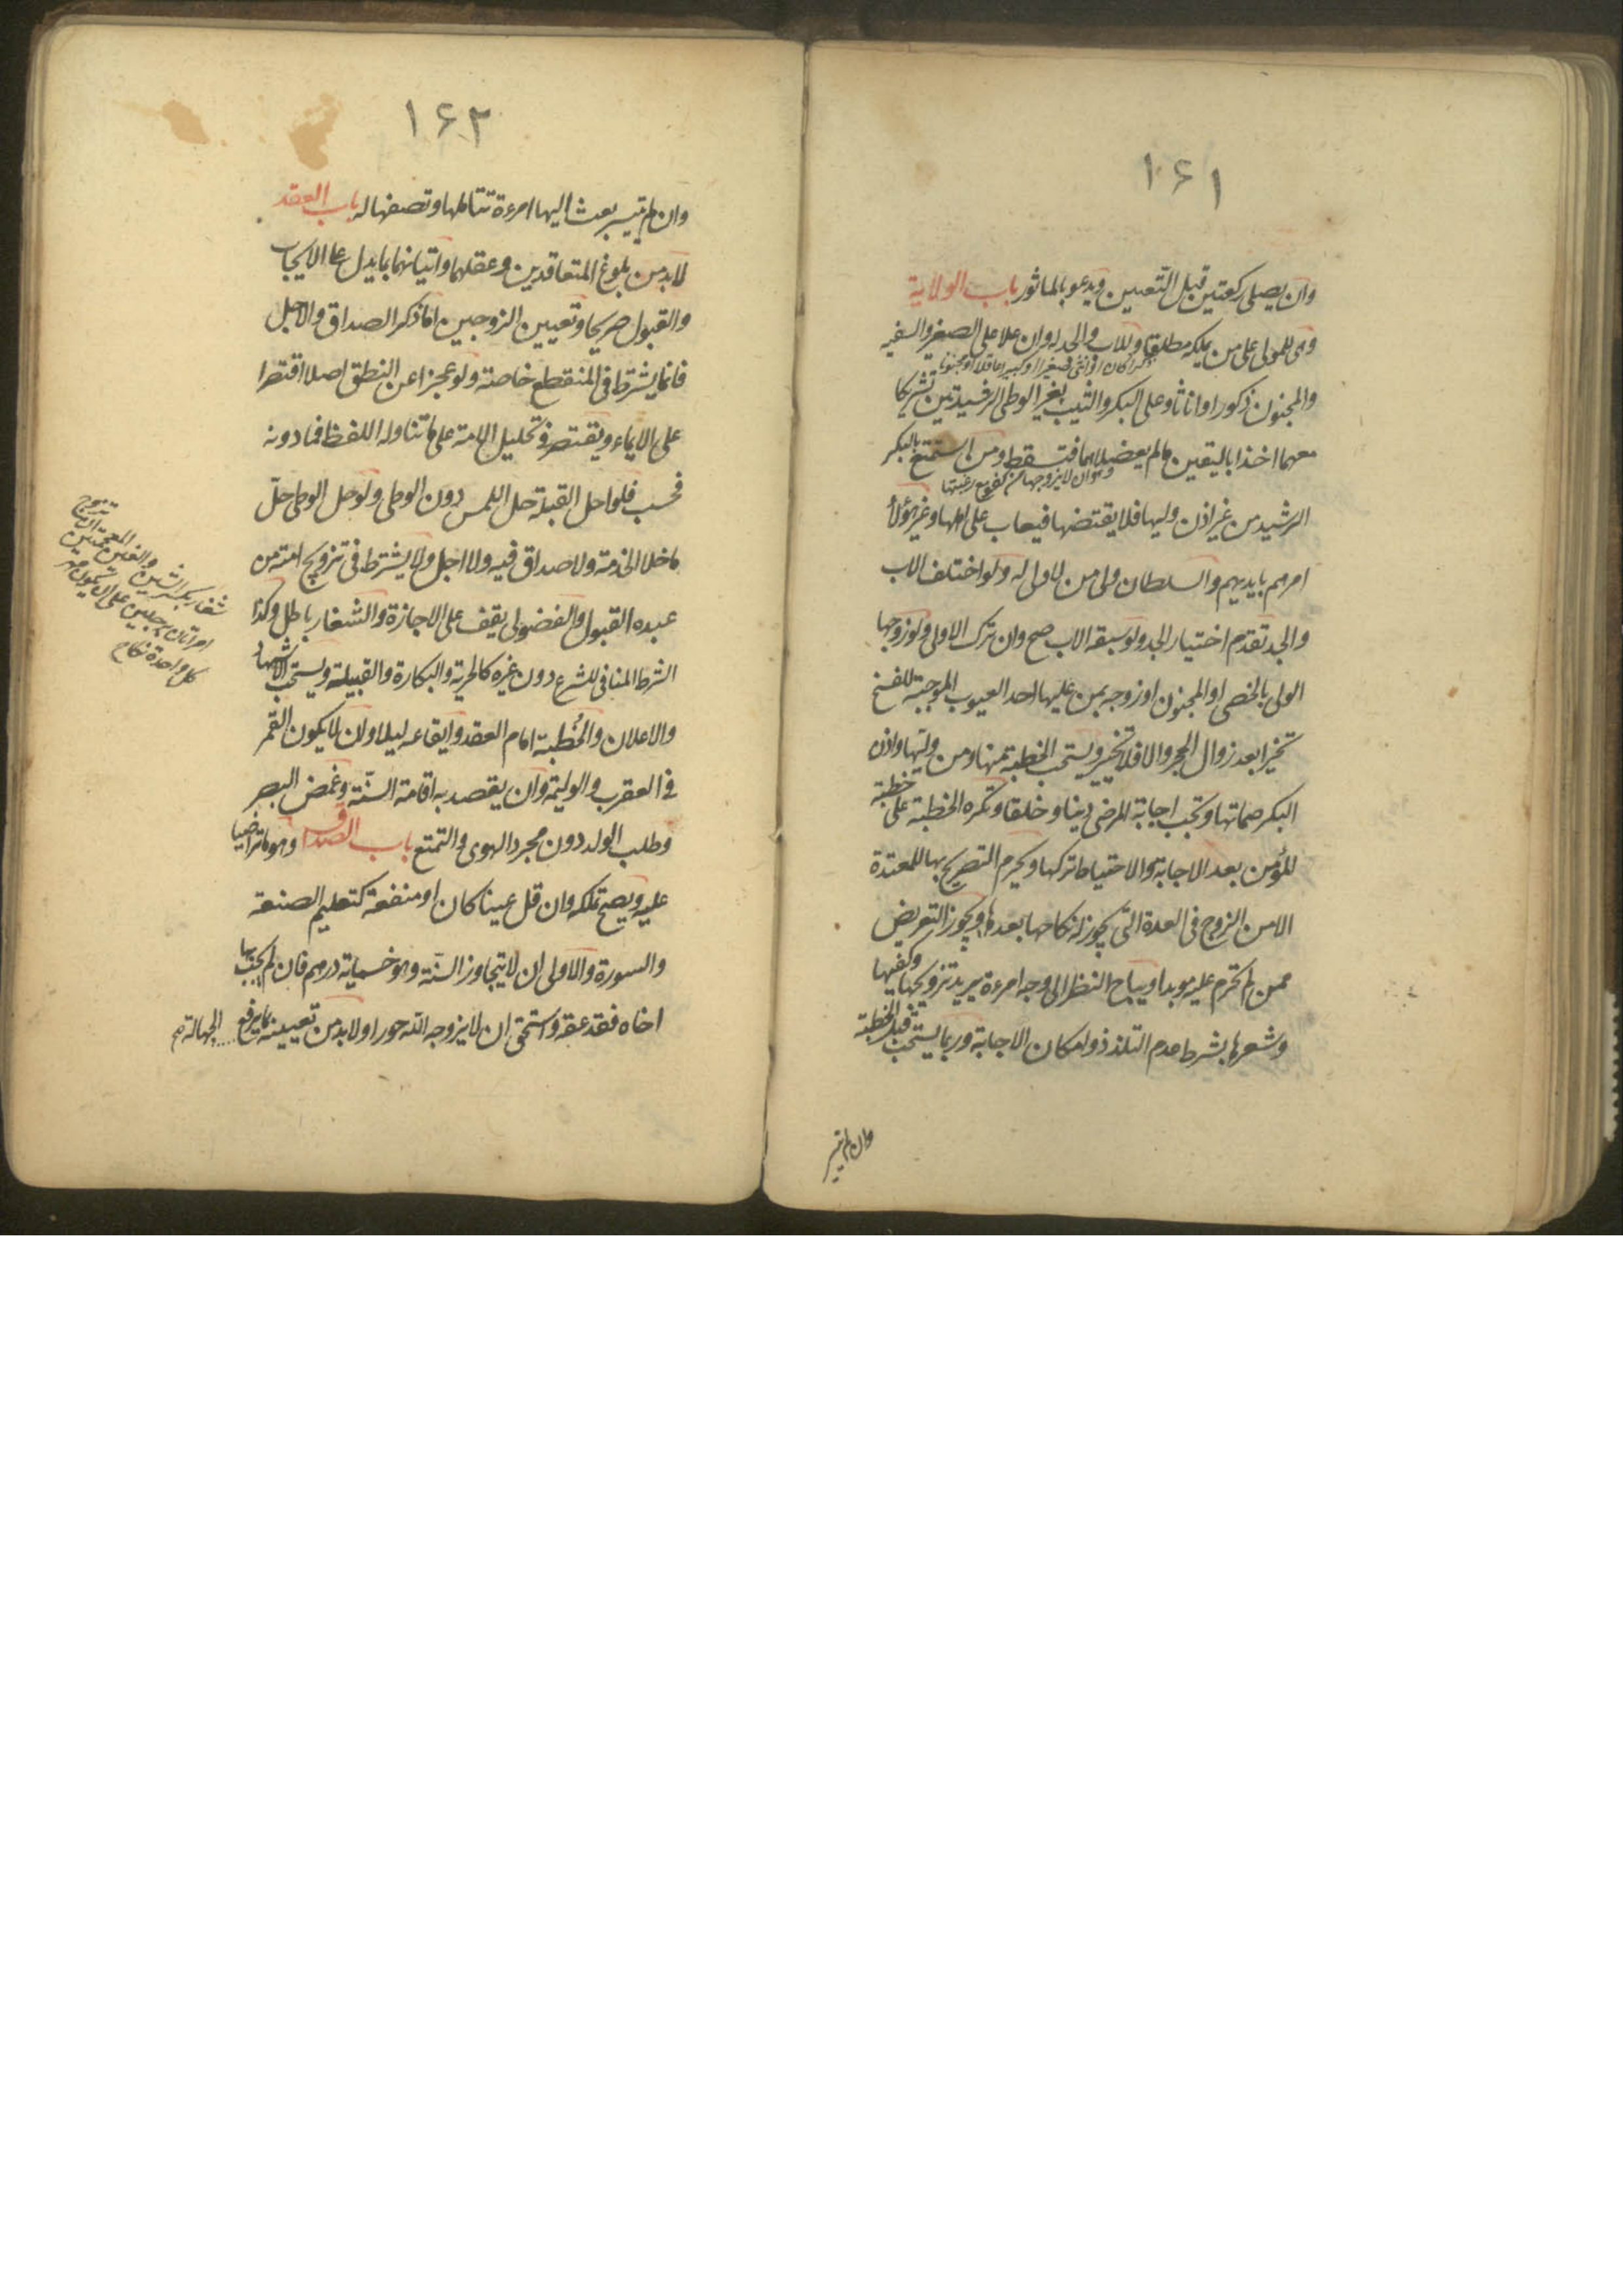 ١۶١
وان يصلى ركعتين قبل التعيين ويدعو بالماثور باب الولاية
وهى للمولى على من يملكه مطلقا وللاب والجد له وان علا على الصغير والسفيه
ذكرا كان او انثى صغيرا او كبيرا عاقلا او مجنونا
والمجنون ذكورا واناثا وعلى البكر والثيب بغير الوطى الرشيدتين تشريكا
معهما اخذا باليقين ما لم يعضلاهما فتسقط ومن استمتع بالبكر
وهو ان لا يزوجها من كفو مع رغبتها
الرشيد من غير اذن وليها فلا يقتضها فيعاب على اهلها وغير هؤلاء
امرهم بايديهم والسلطان ولى من لا ولى له ولو اختلف الاب
والجد تقدم اختيار الجد ولو سبقه الاب صح وان ترك الاولى ولو زوجها
الولى بالخصى او المجنون او زوجه بمن عليها احد العيوب الموجبة للفسخ
تخيرا بعد زوال الحجر والا فلا تخيير ويستحب الخطبة منها ومن وليها واذن
البكر صماتها وتجب اجابة المرضى دينا وخلقا وتكره الخطبة على خطبة
المؤمن بعد الاجابة والاحتياط تركها ويحرم التصريح بها للمعتدة
الا من الزوج فى العدة التى يجوز له نكاحها بعدها ويجوز التعريض
ممن لم تحرم عليه موبدا ويباح النظر الى وجه امرءة يريد تزويجها وكفيها
وشعرها بشرط عدم التلذذ وامكان الاجابة وربما يستحب قبل الخطبة
وان لم يتيسر
١۶٢
وان لم يتيسر بعث اليها امرءة تتاملها وتصفها له باب العقد
لا بد من بلوغ المتعاقدين وعقلهما واتيانهما بما يدل على الايجاب
والقبول صريحا وتعيين الزوجين اما ذكر الصداق والاجل
فانما يشترط فى المنقطع خاصة ولو عجزا عن النطق اصلا اقتصرا
على الايماء ويقتصر فى تحليل الامة على ما تناوله اللفظ فما دونه
فحسب فلو احل القبلة حل اللمس دون الوطى ولو حل الوطى حل
ما خلا الخدمة ولا صداق فيه ولا اجل ولا يشترط فى تزويج امته من
عبده القبول والفضولى يقف على الاجازة والشغار باطل وكذا
الشرط المنافى للشرع دون غيره كالحرية والبكارة والقبيلة ويستحب الاشهاد
والاعلان والخطبة امام العقد وايقاعه ليلا وان لا يكون القمر
فى العقرب والوليمة وان يقصد به اقامة السنّة وغمض البصر
وطلب الولد دون مجرد الهوى والتمتع باب الصداق وهو ما تراضيا
عليه ويصح تملكه وان قل عينا كان او منفعة كتعليم الصنعة
والسورة والاولى ان لا يتجاوز السنّة وهو خمسماية درهم فان لم يجب بها
اخاه فقد عقه واستحق ان لا يزوجه الله حورا ولا بد من تعيينه بما يرفع الجهالة
شغار بكسر الشين والغين المعجمتين ان تتزوج
امرأتان برجلين على ان يكون مهر
كل واحدة نكاح